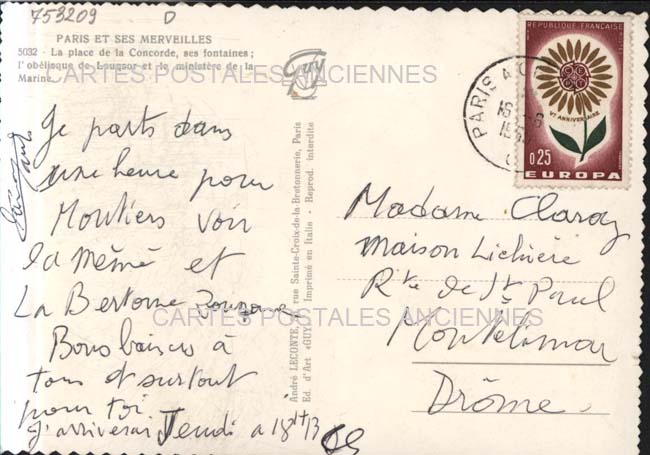 753209 D
PARIS ET SES MERVEILLES
5032 - La place de la Concorde, ses fontaines ;
l'obélisque de Louqsor et le ministère de la
Marine.
CARTES POSTALES ANCIENNES
Guy
Je parts dans
une heure pour
Moutiers voir
la mémé et
La Bertome
Bons baisers à
tous et surtout
pour toi
J'arriverai Jeudi a 18H13
André LECONTE, rue Sainte-Croix-de-la-Bretonnerie, Paris
Ed. d'Art «GUY» Imprimé en Italie - Reprod. interdite
PARIS
REPUBLIQUE FRANÇAISE
Ve ANNIVERSAIRE
0,25
EUROPA
Madame Claray
Maison Lichière
Rte de St Paul
Montélimar
Drôme
CARTES POSTALES ANCIENNES